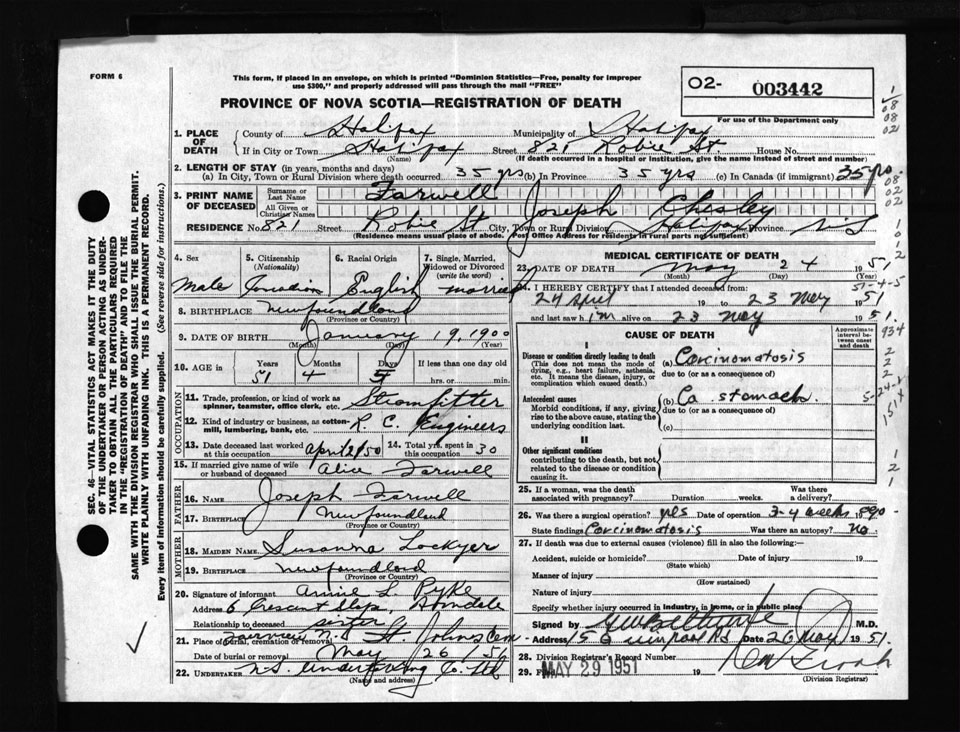 FORM 6
This form, if placed in an envelope, on which is printed "Dominion Statistics—Free, penalty for improper
use $300," and properly addressed will pass through the mail "FREE"
PROVINCE OF NOVA SCOTIA—REGISTRATION OF DEATH
O2- 003442
For use of the Department only
1. PLACE OF DEATH
County of Halifax Municipality of Halifax
If in City or Town Halifax Street 821 Robie St. House No.
(Name) (If death occurred in a hospital or institution, give the name instead of street and number)
2. LENGTH OF STAY (in years, months and days)
(a) In City, Town or Rural Division where death occurred 35 yrs (b) In Province 35 yrs (c) In Canada (if immigrant) 35 yrs
3. PRINT NAME OF DECEASED
Surname or Last Name Farwell
All Given or Christian Names Joseph Chesley
RESIDENCE No. 821 Street Robie St City, Town or Rural Division Halifax Province N.S
(Residence means usual place of abode. Post Office Address for residents in rural parts not sufficient)
4. Sex
Male
5. Citizenship (Nationality)
Canadian
6. Racial Origin
English
7. Single, Married, Widowed or Divorced (write the word)
married
8. BIRTHPLACE Newfoundland
(Province or Country)
9. DATE OF BIRTH January 19, 1900
(Month) (Day) (Year)
10. AGE Years Months Days If less than one day old
51 4 5 hrs. or min.
OCCUPATION
11. Trade, profession, or kind of work as spinner, teamster, office clerk, etc. Steamfitter
12. Kind of industry or business, as cotton-mill, lumbering, bank, etc. R. C. Engineers
13. Date deceased last worked at this occupation April 2/50
14. Total yrs. spent in this occupation 30
15. If married give name of wife or husband of deceased Alice Farwell
FATHER
16. NAME Joseph Farwell
17. BIRTHPLACE Newfoundland
(Province or Country)
MOTHER
18. MAIDEN NAME Susanna Lockyer
19. BIRTHPLACE Newfoundland
(Province or Country)
20. Signature of informant Annie L. Pyke
Address 6 Crescent Armdale
Relationship to deceased sister
21. Place of burial, cremation or removal Fairview N.S. St. Johns Cem
Date of burial or removal May 26/51
22. UNDERTAKER N.S. Undertaking Co. Ltd
(Name and address)
MEDICAL CERTIFICATE OF DEATH
23. DATE OF DEATH May 24 1951
(Month) (Day) (Year)
24. I HEREBY CERTIFY that I attended deceased from:
24 April 19 to 23 May 1951
and last saw him alive on 23 May 1951.
CAUSE OF DEATH
Approximate interval between onset and death
I
Disease or condition directly leading to death
(This does not mean the mode of dying, e.g., heart failure, asthenia, etc. It means the disease, injury, or complication which caused death.)
(a) Carcinomatosis
due to (or as a consequence of)
Antecedent causes
Morbid conditions, if any, giving rise to the above cause, stating the underlying condition last.
(b) Ca. stomach.
due to (or as a consequence of)
(c)
II
Other significant conditions
contributing to the death, but not related to the disease or condition causing it.
25. If a woman, was the death associated with pregnancy? Duration weeks. Was there a delivery?
26. Was there surgical operation? yes Date of operation 3-4 weeks ago
State findings Carcinomatosis Was there an autopsy? no
27. If death was due to external causes (violence) fill in also the following:—
Accident, suicide or homicide? Date of injury 19
(State which)
Manner of injury
(How sustained)
Nature of injury
Specify whether injury occurred in industry, in home, or in public place
Signed by M.D.
Address 156 Rd Date 26 May 1951
28. Division Registrar's Record Number
29. MAY 29 1951 19
(Division Registrar)
SEC. 46—VITAL STATISTICS ACT MAKES IT THE DUTY
OF THE UNDERTAKER OR PERSON ACTING AS UNDER-
TAKER TO OBTAIN ALL THE PARTICULARS REQUIRED
IN THE "REGISTRATION OF DEATH" AND TO FILE THE
SAME WITH THE DIVISION REGISTRAR WHO SHALL ISSUE THE BURIAL PERMIT.
WRITE PLAINLY WITH UNFADING INK. THIS IS A PERMANENT RECORD.
Every item of information should be carefully supplied. (See reverse side for instructions.)